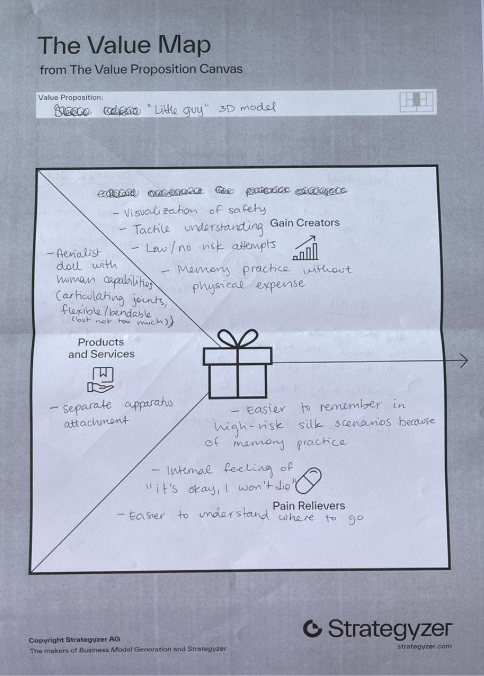 The Value Map
from The Value Proposition Canvas
Value Proposition:
"Little guy" 3D model
- Visualization of safety
- Tactile understanding
Gain Creators
- Low/no risk attempts
- Memory practice without
physical expense
- Aerialist
doll with
human capabilities
(articulating joints,
flexible/bendable
(but not too much))
Products
and Services
- separate apparatus
attachment
- Easier to remember in
high-risk silk scenarios because
of memory practice
- Internal feeling of
"it's okay, I won't die"
Pain Relievers
- Easier to understand where to go
Copyright Strategyzer AG
The makers of Business Model Generation and Strategyzer
Strategyzer
strategyzer.com